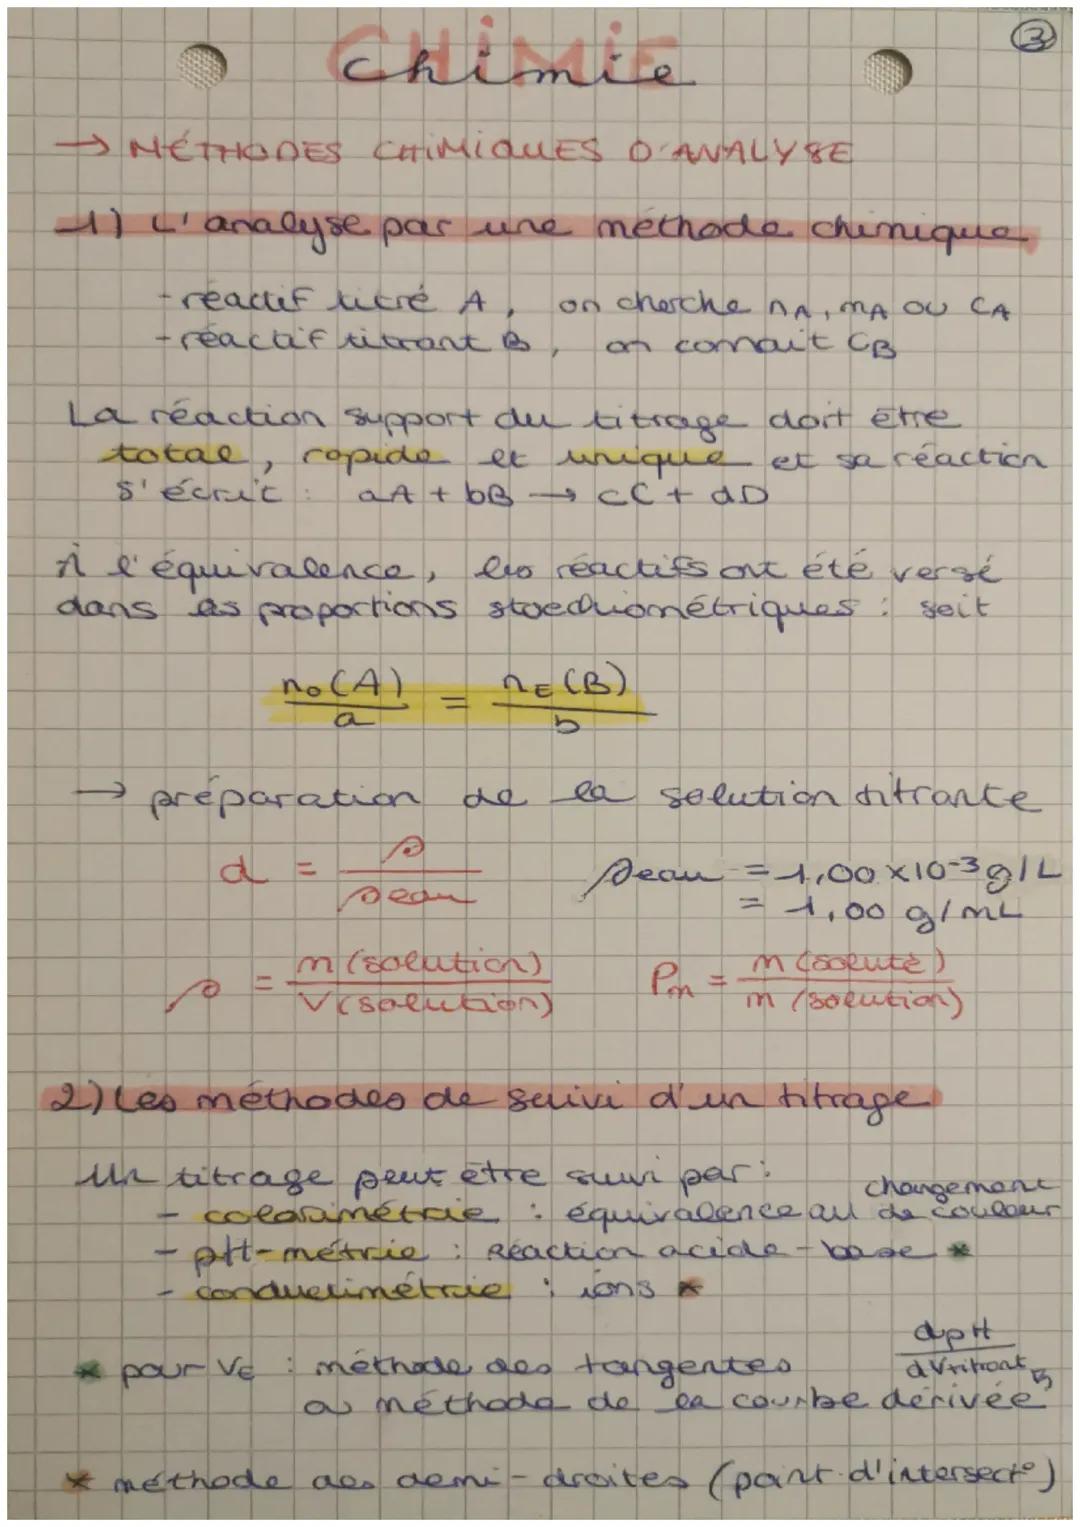 ③
CHIMIE
chimie
→ MÉTHODES CHIMIQUES D'ANALYSE
1) L'analyse par une méthode chimique
- réactif titré A, on cherche nA, mA ou CA
- réactif titrant B, on connait CB
La réaction support du titrage doit être
totale, rapide et unique et sa réaction
s'écrit : aA + bB → cC + dD
À l'équivalence, les réactifs ont été versé
dans les proportions stoechiométriques : soit
n₀(A)/a = nE(B)/b
→ préparation de la solution titrante
d = ρ/ρeau ρeau = 1,00 × 10-3 g/L
= 1,00 g/mL
ρ = m(solution)/V(solution) Pm = m(soluté)/m(solution)
2) Les méthodes de suivi d'un titrage
Un titrage peut être suivi par :
- colorimétrie : équivalence au changement de couleur
- pH-métrie : Réaction acide-base *
- conductimétrie : ions *
* pour VE : méthode des tangentes
ou méthode de la courbe dérivée dpH/dVtitrant B
* méthode des demi-droites (point d'intersect°)